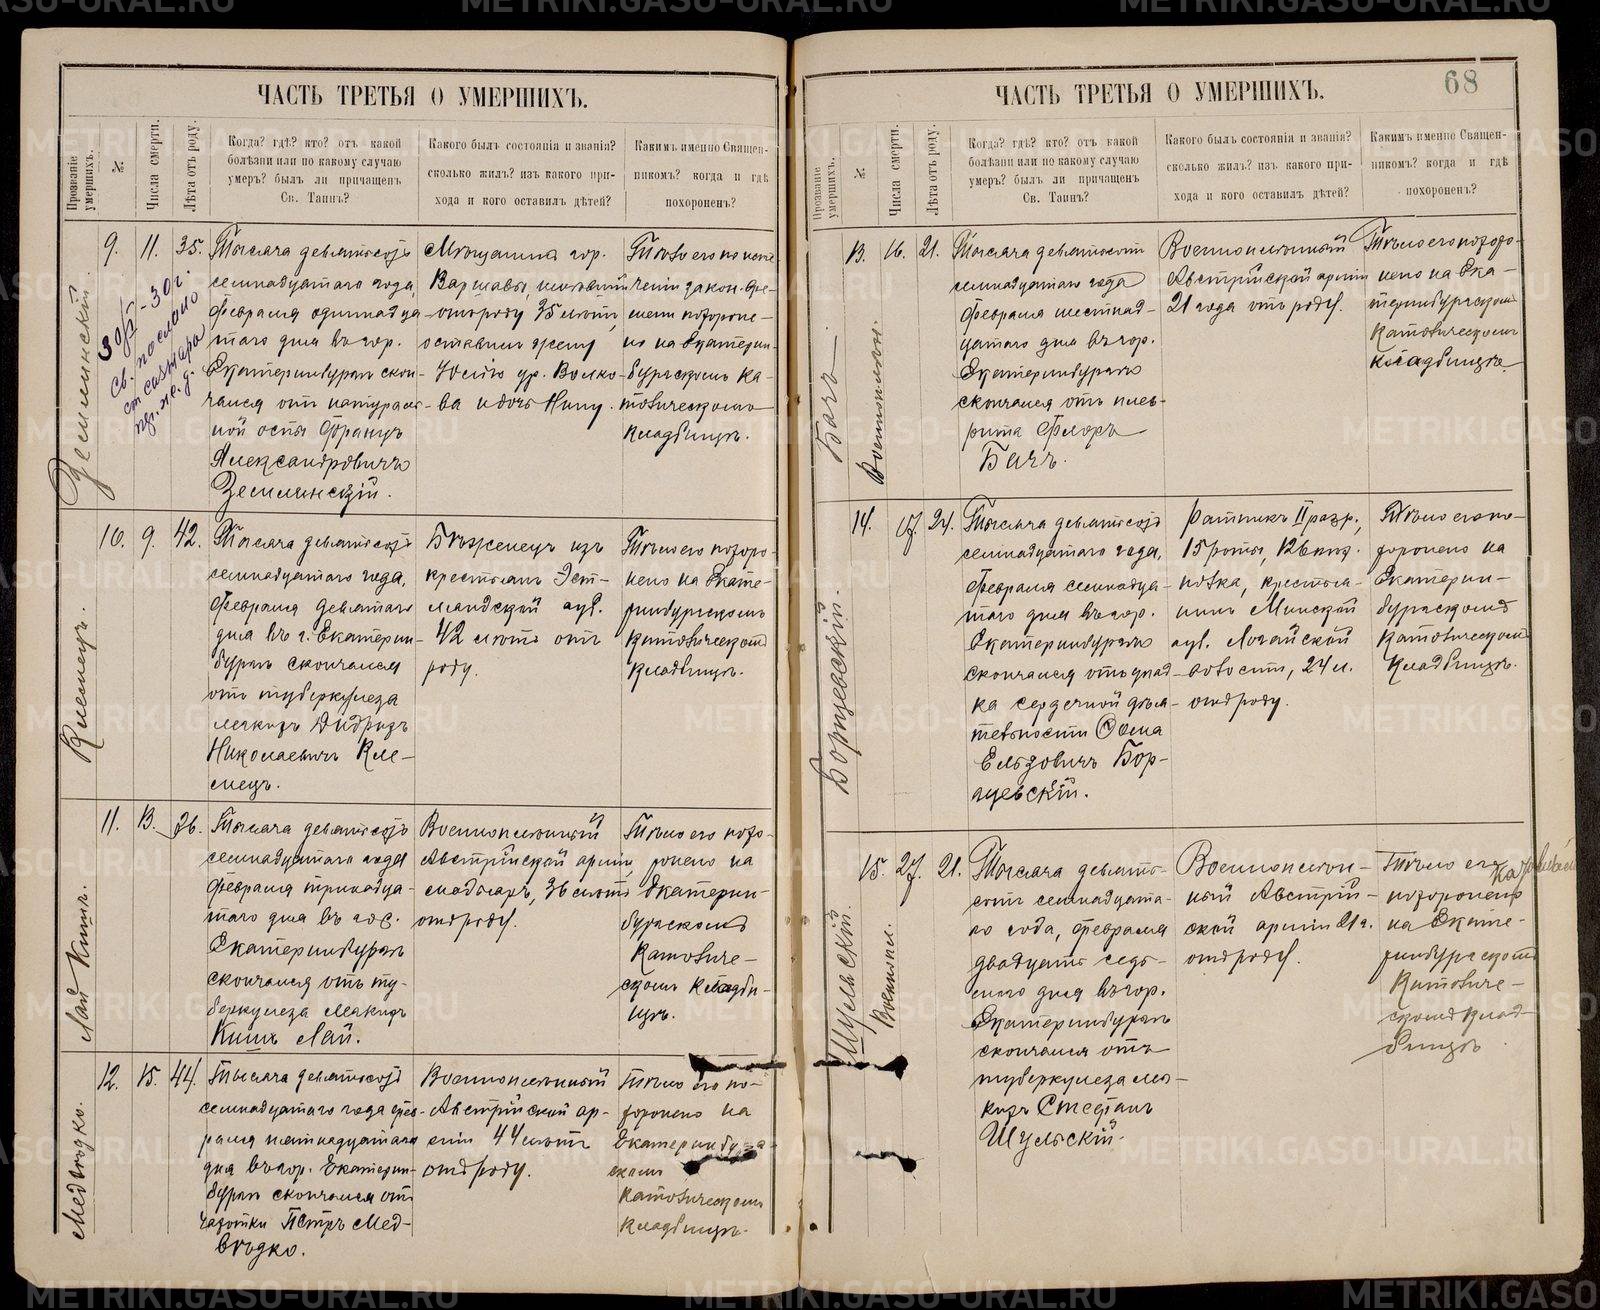 ЧАСТЬ ТРЕТЬЯ О УМЕРШИХЪ.
Прозваніе умершихъ.
№
Числа смерти.
Лѣта отъ роду.
Когда? гдѣ? кто? отъ какой
болѣзни или по какому случаю
умеръ? былъ ли причащенъ
Св. Таинъ?
Какого былъ состоянія и званія?
сколько жилъ? изъ какого при-
хода и кого оставилъ дѣтей?
Какимъ именно Священ-
никомъ? когда и гдѣ
похороненъ?
Землинскій.
9.
11.
35.
Тысяча девятьсотъ
семнадцатаго года,
февраля одиннадца
таго дня въ гор.
Екатеринбургѣ скон-
чался отъ натураль-
ной оспы Францъ
Александровичъ
Землинскій.
Мѣщанинъ гор.
Варшавы,
отъ роду 35 лѣтъ,
оставилъ жену
Юлію ур. Волко-
ва и дочь Нину.
Тѣло его по исте
ченіи закон. вре-
мени похороне-
но на Екатерин-
бургскомъ Ка-
толическомъ
кладбищѣ.
Св. послано
Клемецъ.
10.
9.
42.
Тысяча девятьсотъ
семнадцатаго года,
февраля девятаго
дня въ г. Екатерин-
бургѣ скончался
отъ туберкулеза
легкихъ Дидрихъ
Николаевичъ Кле-
мецъ.
Бѣженецъ изъ
крестьянъ Эст-
ляндской губ.
42 лѣтъ отъ
роду.
Тѣло его похоро-
нено на Екате-
ринбургскомъ
Католическомъ
кладбищѣ.
Лай Кишъ.
11.
13.
36.
Тысяча девятьсотъ
семнадцатаго года
февраля тринадца-
таго дня въ гор.
Екатеринбургѣ
скончался отъ ту-
беркулеза легкихъ
Кишъ Лай.
Военноплѣнный
Австрійской арміи,
мадьяръ, 36 лѣтъ
отъ роду.
Тѣло его похо-
ронено на
Екатерин-
бургскомъ
Католиче-
скомъ кладби-
щѣ.
Медводко.
12.
15.
44.
Тысяча девятьсотъ
семнадцатаго года фев-
раля пятнадцатаго
дня въ гор. Екатерин-
бургѣ скончался отъ
чахотки Петръ Мед-
водко.
Военноплѣнный
Австрійской ар-
міи 44 лѣтъ
отъ роду.
Тѣло его по-
хоронено на
Екатеринбург-
скомъ
Католическомъ
кладбищѣ.
68
ЧАСТЬ ТРЕТЬЯ О УМЕРШИХЪ.
Прозваніе умершихъ.
№.
Числа смерти.
Лѣта отъ роду.
Когда? гдѣ? кто? отъ какой
болѣзни или по какому случаю
умеръ? былъ ли причащенъ
Св. Таинъ?
Какого былъ состоянія и званія?
сколько жилъ? изъ какого при-
хода и кого оставилъ дѣтей?
Какимъ именно Священ-
никомъ? когда и гдѣ
похороненъ?
Бачъ
Военноплѣн.
13.
16.
21.
Тысяча девятьсотъ
семнадцатаго года
февраля шестнад-
цатаго дня въ гор.
Екатеринбургѣ
скончался отъ плев-
рита Флоръ
Бачъ.
Военноплѣнный
Австрійской арміи
21 года отъ роду.
Тѣло его похоро-
нено на Ека-
теринбургскомъ
Католическомъ
кладбищѣ.
Борщевскій.
14.
17.
24.
Тысяча девятьсотъ
семнадцатаго года,
февраля семнадца-
таго дня въ гор.
Екатеринбургѣ
скончался отъ упад-
ка сердечной дѣя-
тельности Ѳома
Борщевскій.
Ратникъ II разр.,
15 роты, 126
полка, крестья-
нинъ Минской
губ. Логайской
волости, 24 л.
отъ роду.
Тѣло его по-
хоронено на
Екатерин-
бургскомъ
Католическомъ
кладбищѣ.
Шульскій.
Военнопл.
15.
27.
21.
Тысяча девять-
сотъ семнадцата-
го года, февраля
двадцать седь-
мого дня въ гор.
Екатеринбургѣ
скончался отъ
туберкулеза лег-
кихъ Стефанъ
Шульскій.
Военноплѣн-
ный Австрій-
ской арміи 21 г.
отъ роду.
Тѣло его
похоронено
на Екате-
ринбургскомъ
Католиче-
скомъ клад-
бищѣ
METRIKI.GASO-URAL.RU